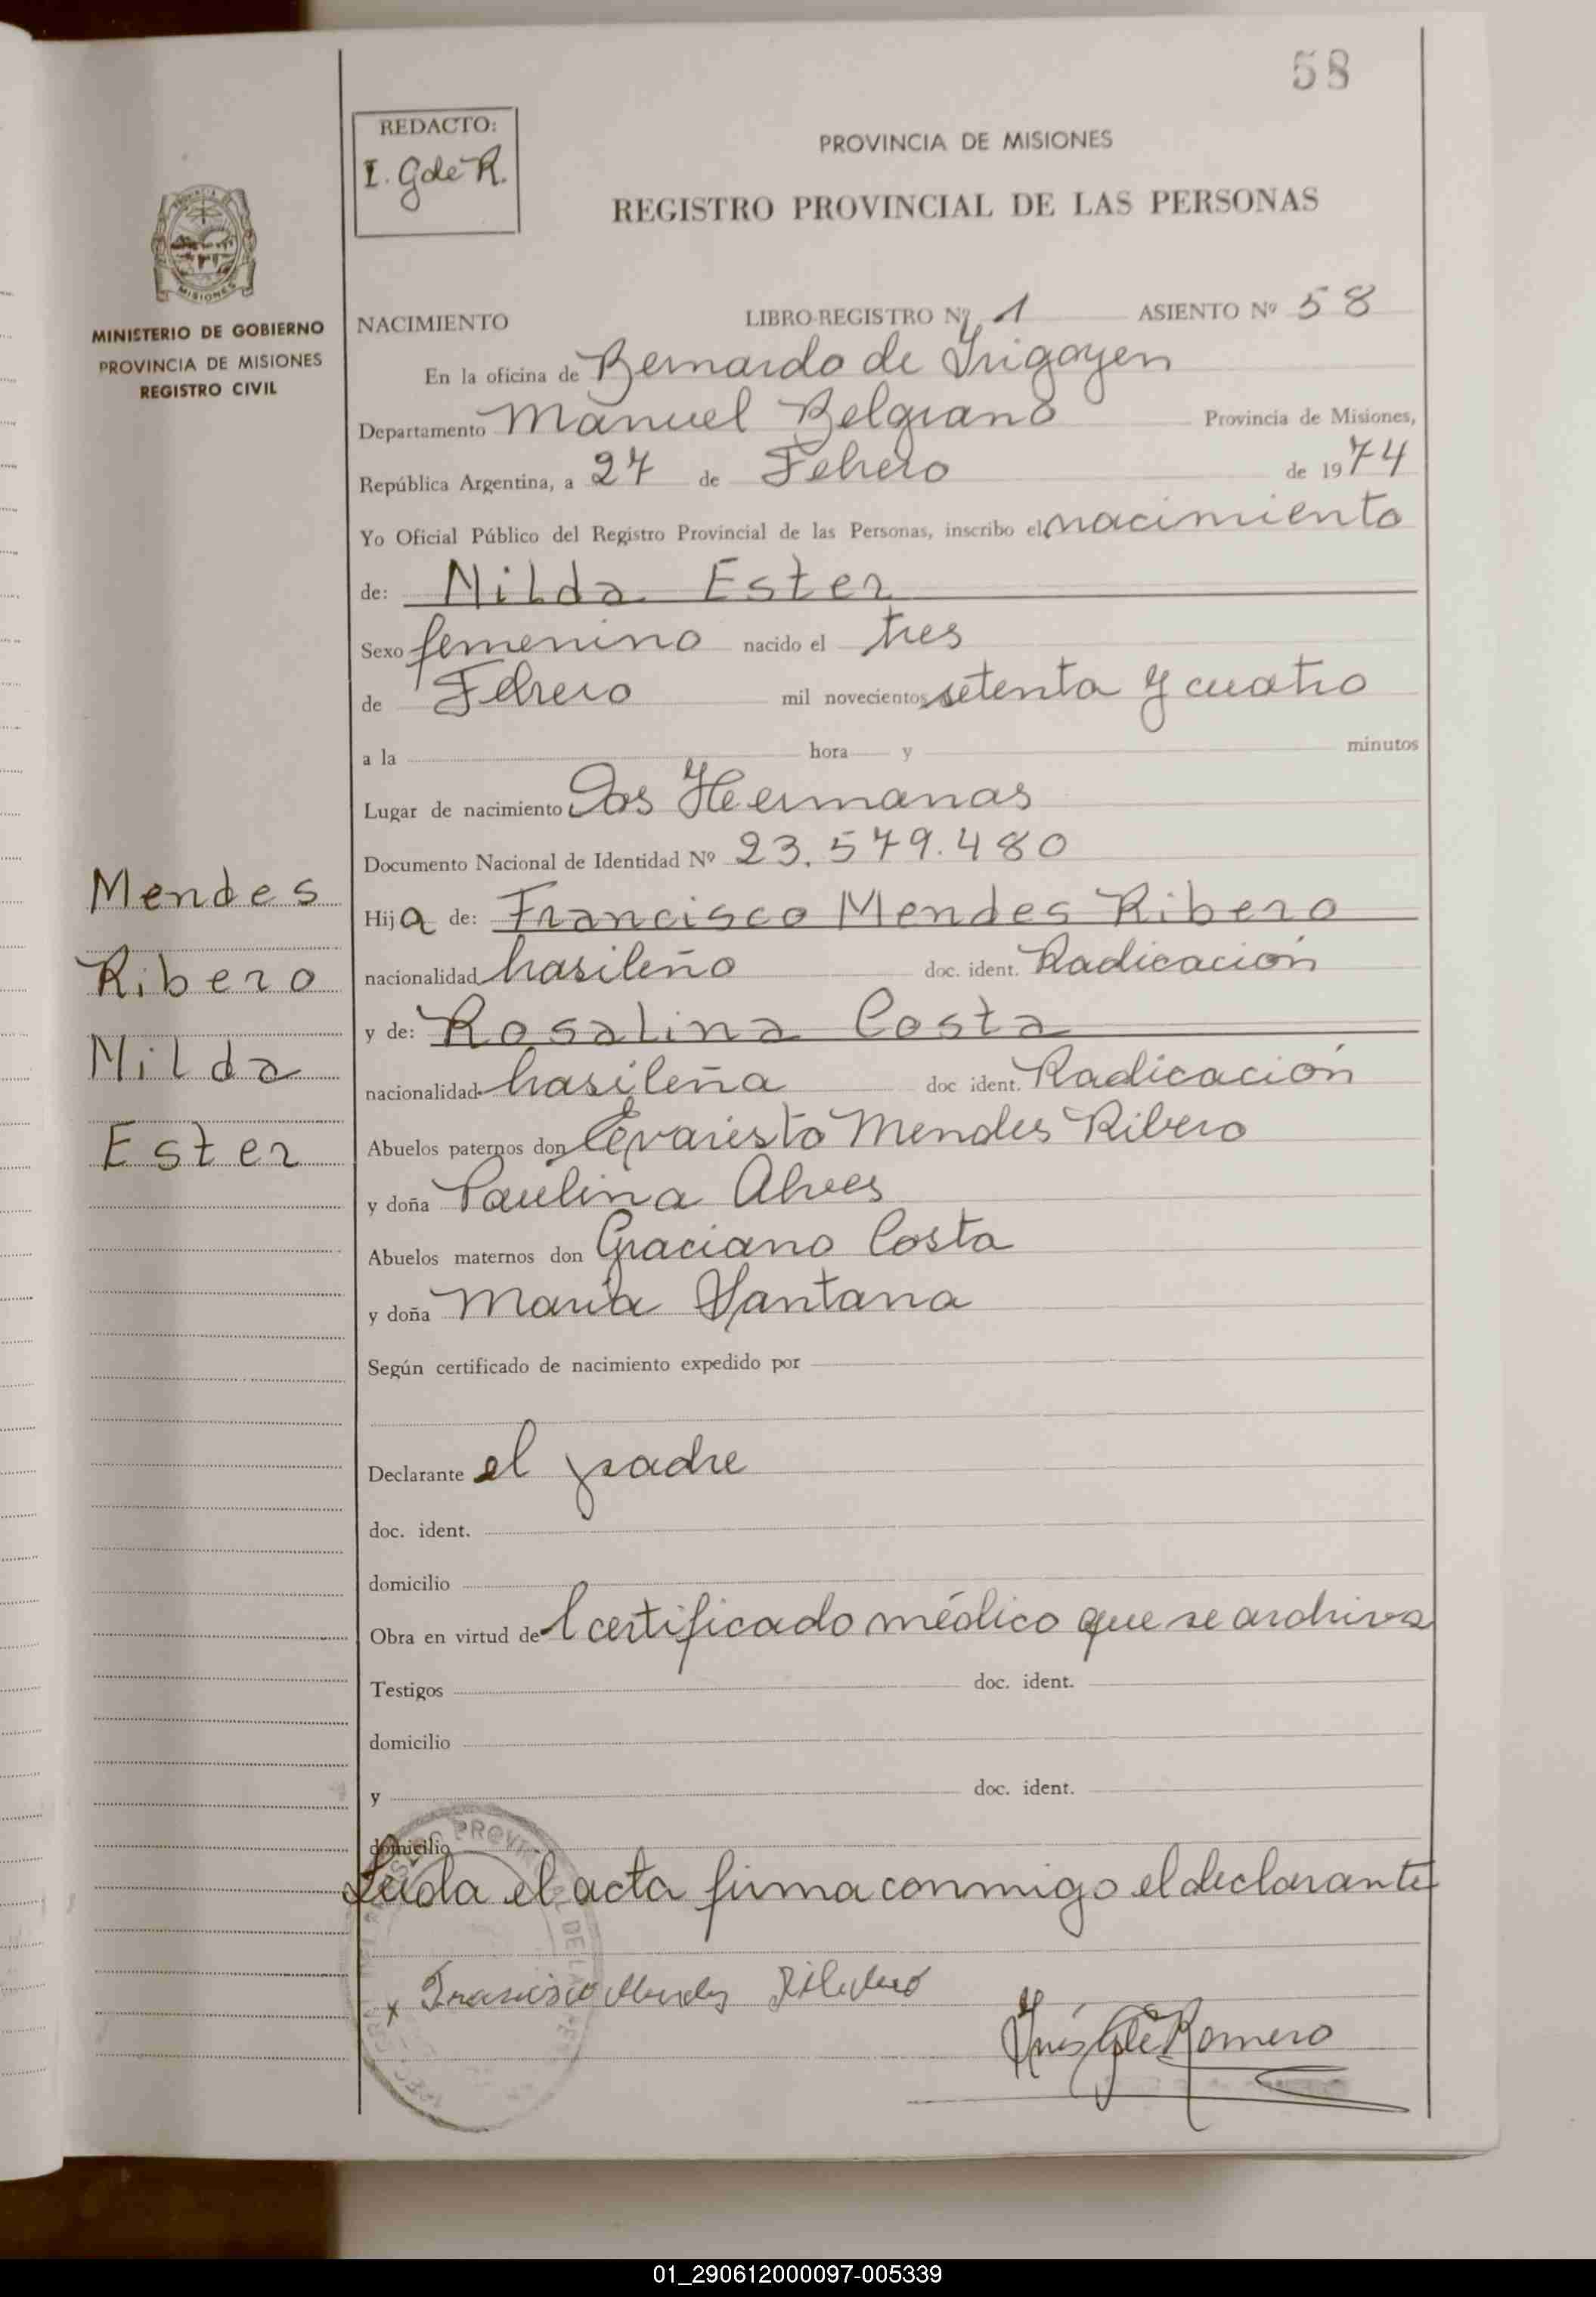 58
REDACTO:
I. G de R.
PROVINCIA DE MISIONES
REGISTRO PROVINCIAL DE LAS PERSONAS
MISIONES
MINISTERIO DE GOBIERNO
PROVINCIA DE MISIONES
REGISTRO CIVIL
NACIMIENTO LIBRO-REGISTRO Nº 1 ASIENTO Nº 58
En la oficina de Bernardo de Irigoyen
Departamento Manuel Belgrano Provincia de Misiones,
República Argentina, a 27 de Febrero de 1974
Yo Oficial Público del Registro Provincial de las Personas, inscribo el nacimiento
de: Nilda Ester
Sexo femenino nacido el tres
de Febrero mil novecientos setenta y cuatro
a la hora y minutos
Lugar de nacimiento Dos Hermanas
Documento Nacional de Identidad Nº 23.579.480
Hija de: Francisco Mendes Ribero
nacionalidad brasileño doc. ident. Radicación
y de: Rosalina Costa
nacionalidad brasileña doc ident. Radicación
Abuelos paternos don Evaristo Mendes Ribero
y doña Paulina Alves
Abuelos maternos don Graciano Costa
y doña María Santana
Según certificado de nacimiento expedido por
Declarante el padre
doc. ident.
domicilio
Obra en virtud del certificado médico que se archiva
Testigos doc. ident.
domicilio
y doc. ident.
domicilio
Leída el acta firma conmigo el declarante
x Francisco Mendes
Inés G de Romero
Mendes
Ribero
Nilda
Ester
01_290612000097-005339